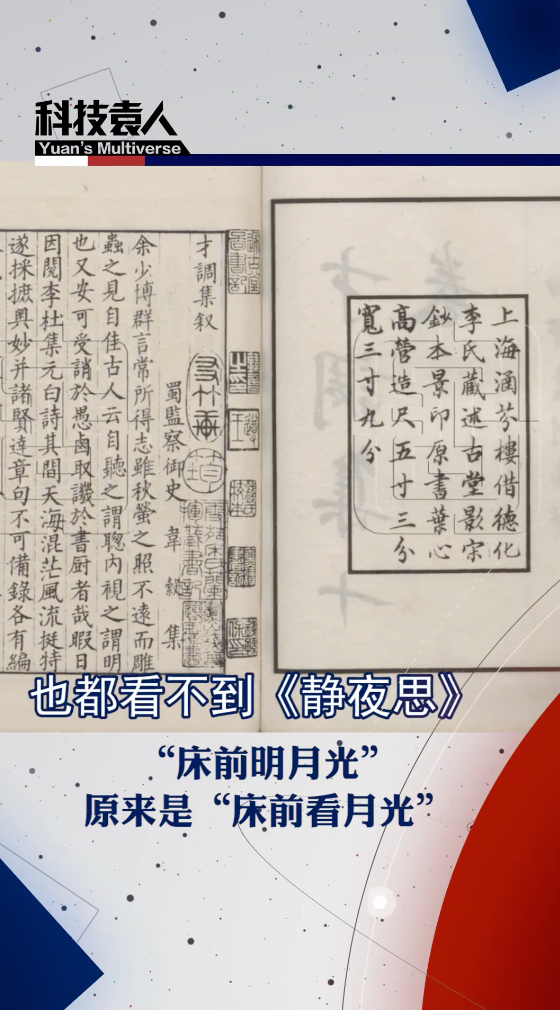 科技袁人
Yuan's Multiverse
上海涵芬樓借德化
李氏藏述古堂影宋
鈔本景印原書葉心
高營造尺五寸三分
寬三寸九分
才調集叙
蜀監察御史 韋 縠 集
余少博群言常所得志雖秋螢之照不遠而雕
蟲之見自佳古人云自聽之謂聰内視之謂明
也又安可受誚於愚鹵取譏於書厨者哉暇日
因閱李杜集元白詩其間天海混茫風流挺特
遂採摭奥妙并諸賢達章句不可備錄各有編
也都看不到《静夜思》
“床前明月光”
原来是“床前看月光”